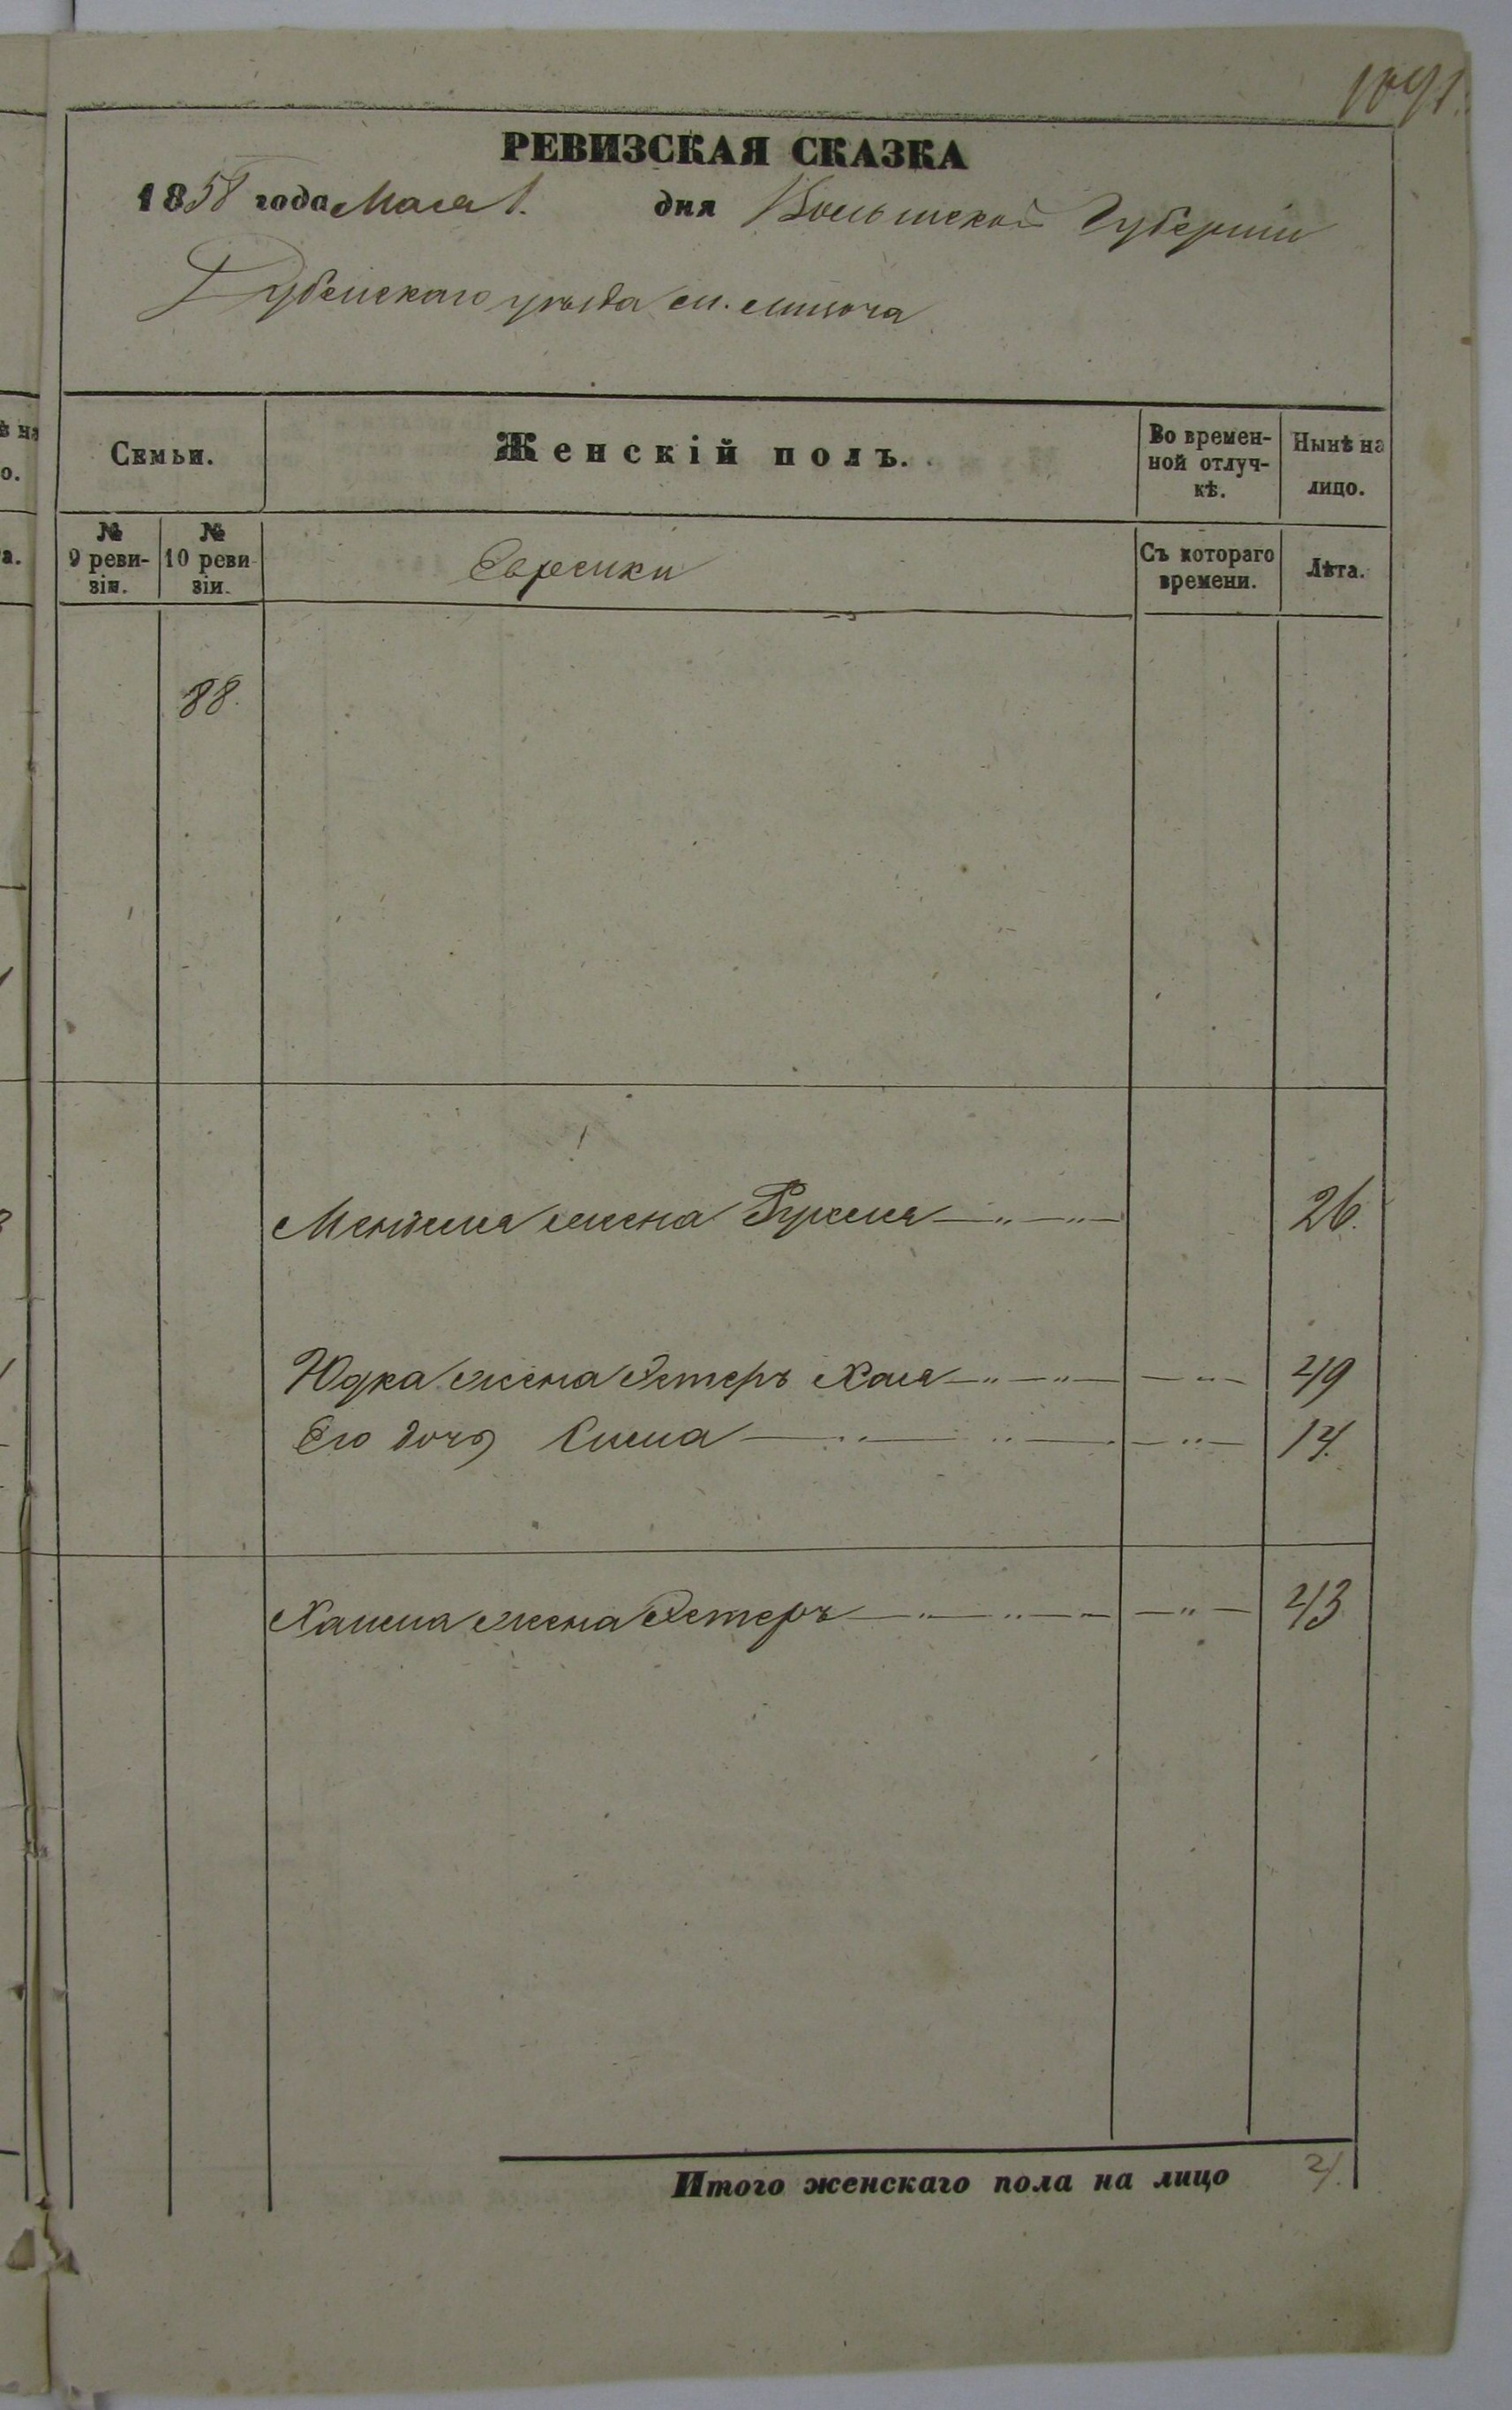 1091.
РЕВИЗСКАЯ СКАЗКА
1858 года Мая 1. дня Волынской Губернии
Дубенскаго уѣзда м. Млинова
Семьи.
Женскій полъ.
Во времен-
ной отлуч-
кѣ.
Нынѣ на
лицо.
№
9 реви-
зіи.
№
10 реви-
зіи.
Еврейки
Съ котораго
времени.
Лѣта.
88.
Менделя жена Рухля 26.
Юдка жена Эстеръ Хая 49
Его дочь Сима 14.
Хаима жена Эстеръ 43
Итого женскаго пола на лицо 4.